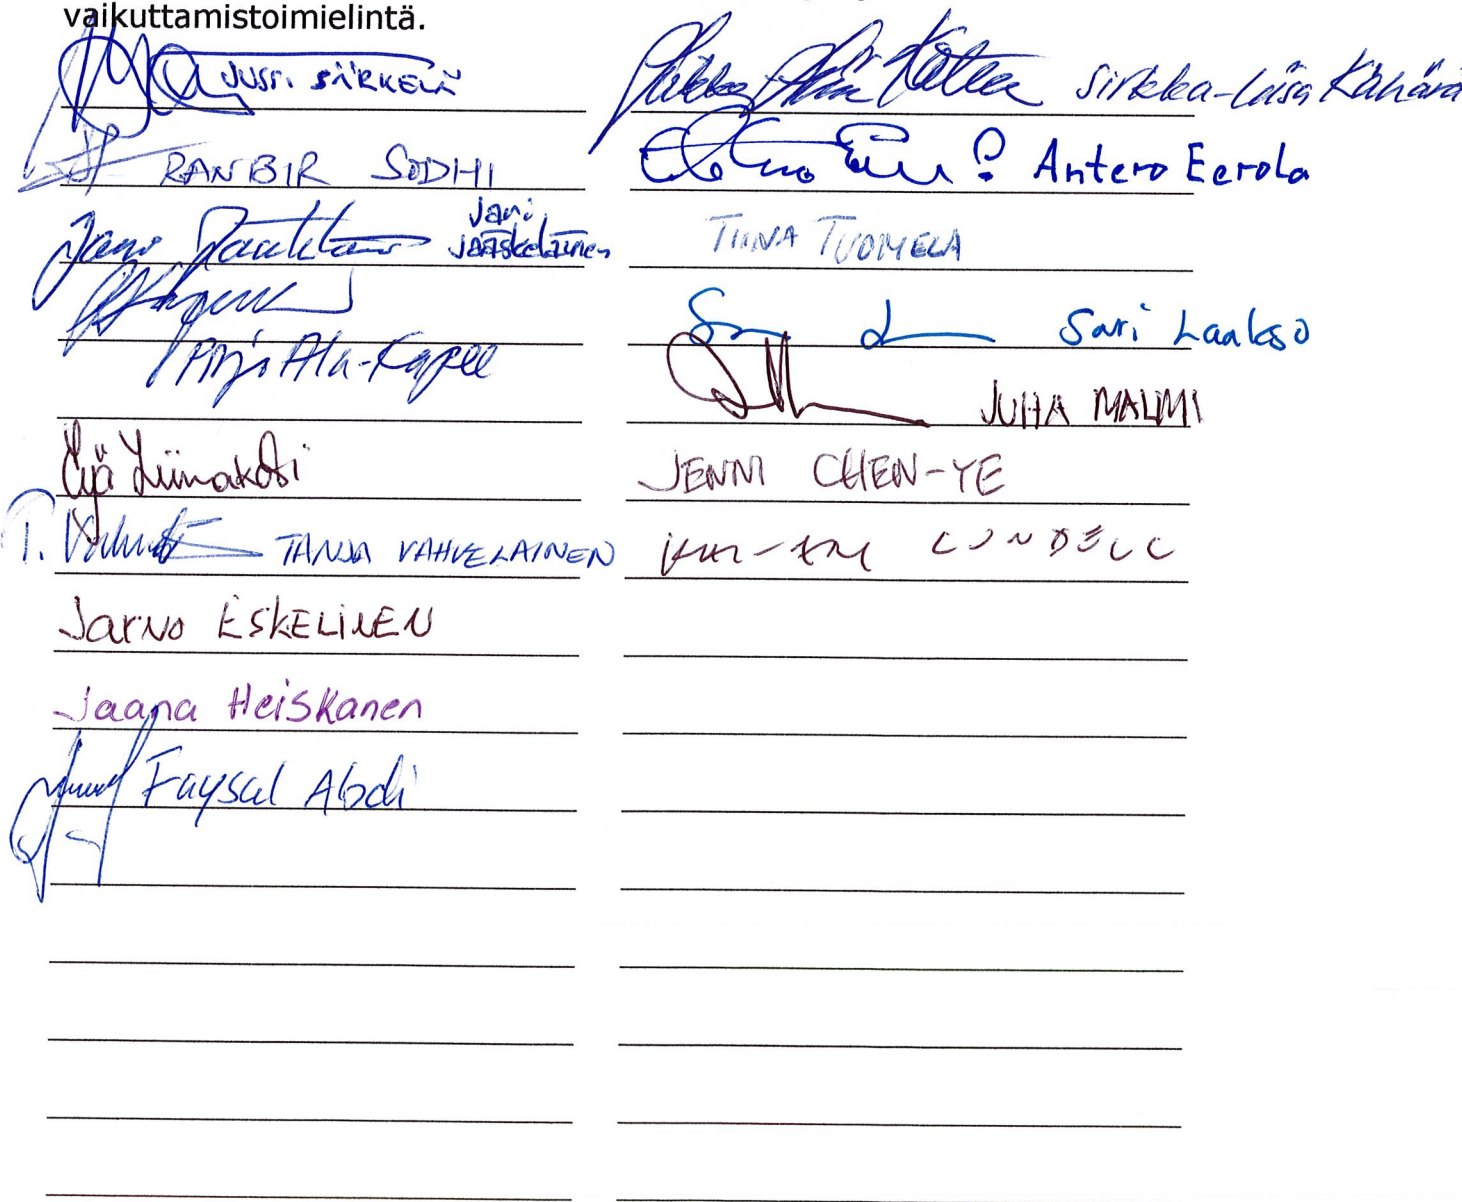 vaikuttamistoimielintä.
JUSSI SÄRKELÄ
RANBIR SODHI
Jani Jääskeläinen
Arja Ala-Kapee
Eija Liimakoski
T. TANJA VAHVELAINEN
Jarno ESKELINEN
Jaana Heiskanen
Faysal Abdi
Sirkka-Liisa Kähärä
Antero Eerola
TIINA TUOMELA
Sari Laakso
JUHA MALMI
JENNI CHEN-YE
LUNDELL